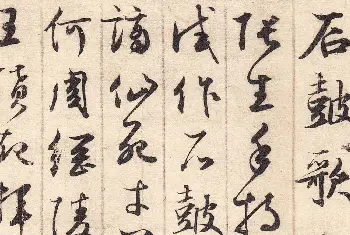 石皷歌
張生手持
試作石皷
謫仙死才
何周綱陵
王憤起揮